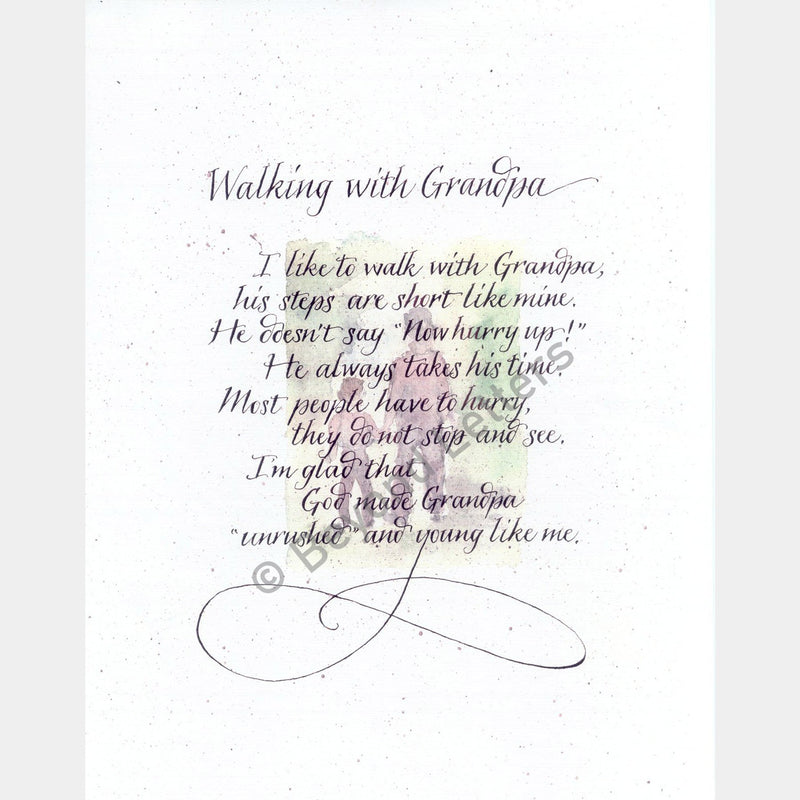 Walking with Grandpa
I like to walk with Grandpa,
his steps are short like mine.
He doesn't say "Now hurry up!"
He always takes his time.
Most people have to hurry,
they do not stop and see.
I'm glad that
God made Grandpa
"unrushed" and young like me.
© Beyond Letters